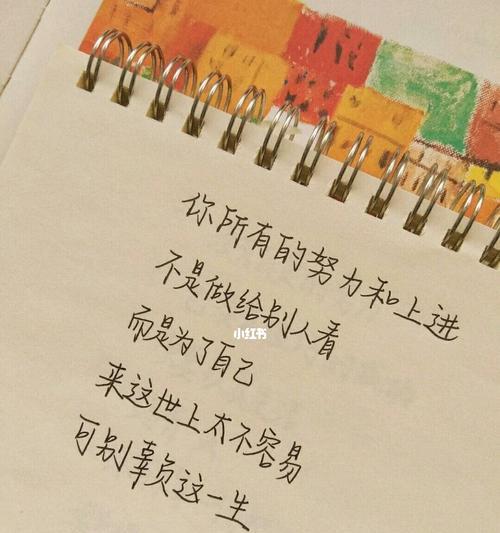 你所有的努力和上进
不是做给别人看
小红书
而是为了自己
来这世上太不容易
可别辜负这一生